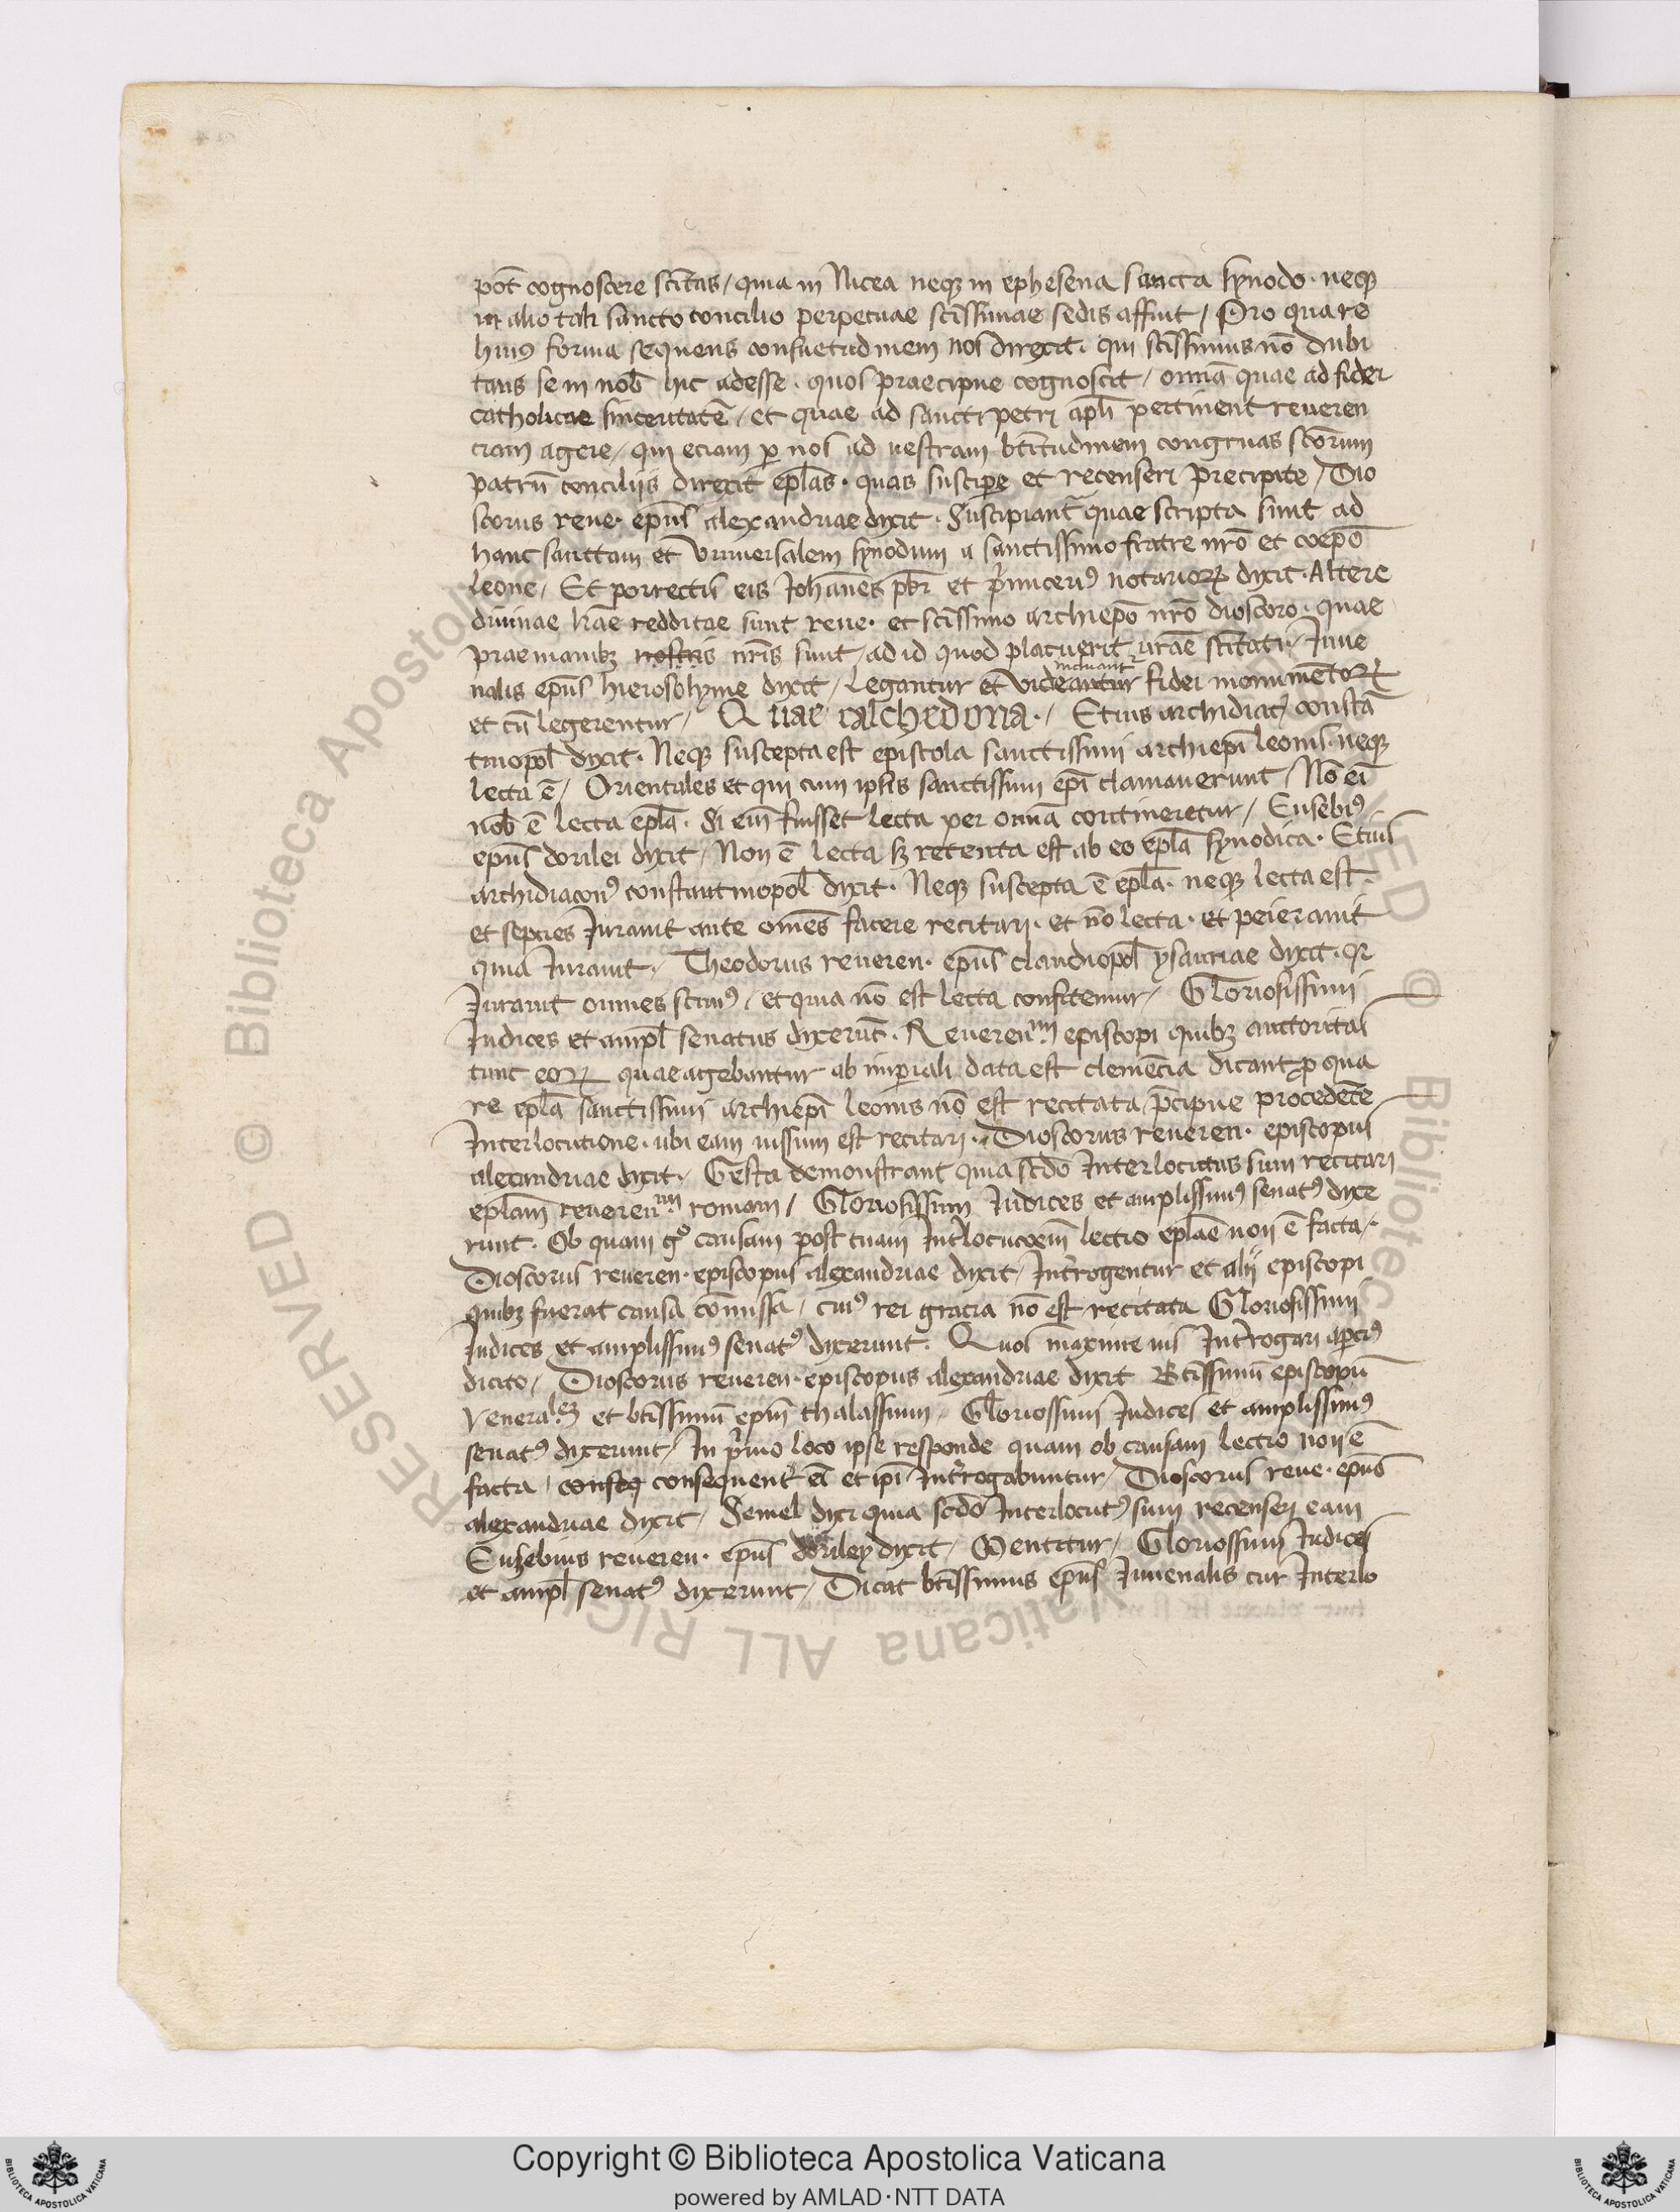 pōt cognoscere sc̄itas / quia in Nicea neqꝫ in ephesena sancta synodo · neqꝫ
in alio tali sancto concilio perpetuae sc̄issimae sedis affuit / Pro qua re
huiꝰ forma sequens consuetudinem nos direxit · qui sc̄issimus nō dubi
tans se in nob̄ hic adesse · quos praecipue cognoscit / om̄ia quae ad fidei
catholicae sinceritatē / et quae ad sancti petri apl̄i pertinent reueren
ciam agere / qui eciam ꝑ nos ad uestram bt̄itudinem congruas sc̄orum
patrū conciliis direxit epl̄as · quas suscipe et recenseri precipite / Dio
scorus reue · ep̄us alexandriae dixit · Suscipiant̄ quae scripta sunt ad
hanc sanctam et Vniuersalem synodum a sanctissimo fratre nr̄o et coep̄o
leone / Et porrectū eis Johānes pb̄r et p̄micerius notarioꝝ dixit · Altere
diuinae lr̄ae redditae sunt reue · et sc̄issimo archiep̄o nr̄o dioscoro · quae
prae manibꝫ nostris nr̄is sunt / ad id quod placuerit ur̄ae sc̄itati · / Juue
nalis ep̄us hierosolyme dixit / Legantur et videantur fidei monumentoꝝ
et cū legerentur / Quae calchedona · / Etius archidiacꝰ constā
tinopol̄ dixit · Neqꝫ suscepta est epistola sanctissimi archiep̄i leonis · neqꝫ
lecta ē / Orientales et qui cum ipsis sanctissimi ep̄i clamauerunt / Nō ei
nob̄ ē lecta epl̄a · Si em̄ fuisset lecta per om̄ia contineretur / Eusebiꝰ
ep̄us dorilei dixit / Non ē lecta sꝫ retenta est ab eo epl̄a synodica · Etius
archidiaconꝰ constantinopol̄ dixit · Neqꝫ suscepta ē epl̄a · neqꝫ lecta est ·
et septies Jurauit ante om̄es facere recitari · et nō lecta · et peierauit
quia Jurauit · Theodorus reueren · ep̄us claudiopol̄ ysauriae dixit · qꝛ
Jurauit omnes scimꝰ / et quia nō est lecta confitemur / Gloriosissimi
Judices et ampl̄ senatus dixerūt · Reueren̄mi episcopi quibꝫ auctoritas
tunc eoꝝ quae agebantur ab imperiali data est clemēcia dicant pro qua
re epl̄a sanctissimi archiep̄i leonis nō est recitata / p̄cipue procedēte
Interlocutione · ubi eam iussum est recitari · Dioscorus reueren · episcopus
alexandriae dixit · Gesta demonstrant quia sc̄do Interlocutus sum recitari
epl̄am reueren̄mi romani / Gloriosissimi Judices et amplissimꝰ senatꝰ dixe
runt · Ob quam gͦ causam post tuam Int̄locuc̄oem̄ lectio epl̄ae non ē facta / ·
Dioscorus reueren · episcopus alexandriae dixit / Int̄rogentur et alij episcopi
quibꝫ fuerat causa cōmissa / cuiꝰ rei gracia nō est recitata Gloriosissimi
Judices et amplissimꝰ senatꝰ dixerunt · Quos maxime uis Int̄rogari aperciꝰ
dicito / Dioscorus reueren · episcopus alexandriae dixit Bt̄issimū episcopū
Venera.lē et bt̄issimū ep̄m thalassium / Gloriossimi Judices et amplissimꝰ
senatꝰ dixerunt / In p̄mo loco ipse responde quam ob causam lectio non ē
facta / conseq consequent̄ ei et ip̄i Int̄rogabuntur / Dioscorus reue · ep̄us
alexandriae dixit / Semel dixi quia sc̄do Interlocutꝰ sum recenseri eam
Eusebius reueren · ep̄us doriley dixit / Mentitur / Gloriossimi Judices
et ampl̄ senatꝰ dixerunt / Dicat bt̄issimus ep̄us Juuenalis cur Interlo
© Biblioteca Apostolica Vaticana ALL RIGHTS RESERVED
Copyright © Biblioteca Apostolica Vaticana
powered by AMLAD·NTT DATA
BIBLIOTECA APOSTOLICA VATICANA
BIBLIOTECA APOSTOLICA VATICANA